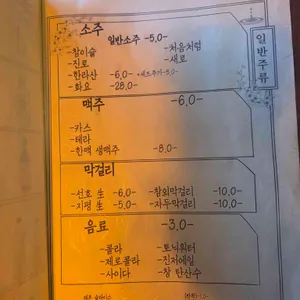 일반주류
소주
일반소주 -5.0-
-참이슬 -처음처럼
-진로 -새로
-한라산 -6.0-
-화요 -28.0-
맥주 -6.0-
-카스
-테라
-한맥 생맥주 -8.0-
막걸리
-선호 生 -6.0- -참외막걸리 -10.0-
-지평 生 -5.0- -자두막걸리 -10.0-
음료 -3.0-
-콜라 -토닉워터
-제로콜라 -진저에일
-사이다 -창 탄산수